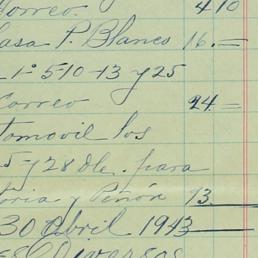 Correo. 4 10
asa P. Blanco 16.=
1º 5-10-13 y 25
Correo 24=
tomovil los
5 y 28 de. para
oria y Peñón 13.
30 Abril 1943
Diversos